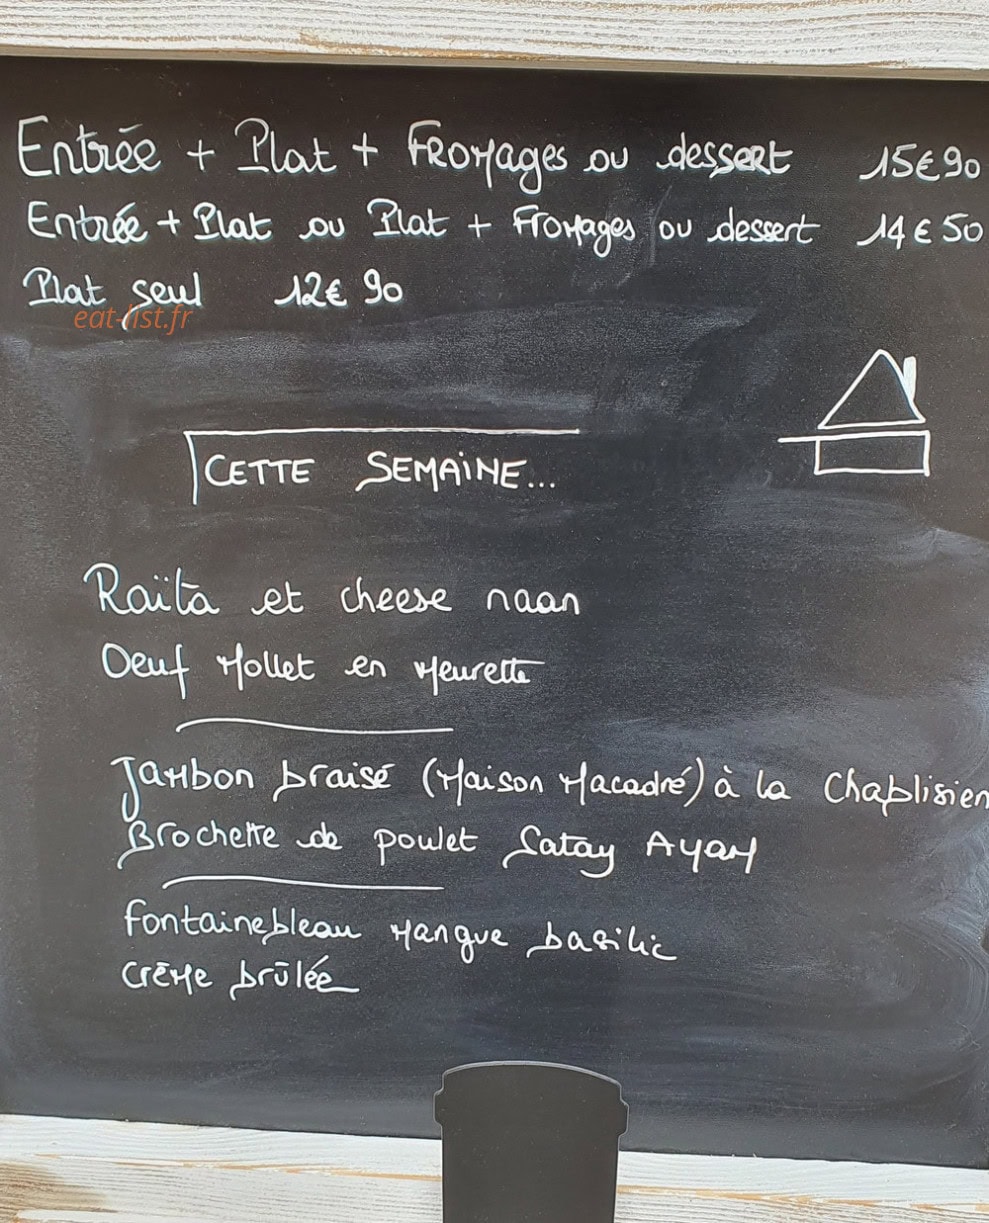 Entrée + Plat + Fromages ou dessert 15€90
Entrée + Plat ou Plat + Fromages ou dessert 14€50
Plat seul 12€90
eat-list.fr
CETTE SEMAINE...
Raïta et cheese naan
Oeuf Mollet en Meurette
Jambon braisé (Maison Macadré) à la Chablisien
Brochette de poulet Satay Ayam
Fontainebleau Mangue basilic
Crème brûlée